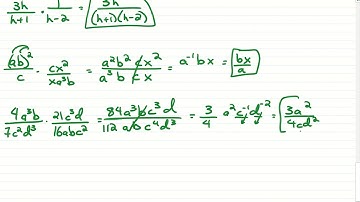 3h/(h+1) · 1/(h-2) = 3h/((h+1)(h-2))
(ab)²/c · cx²/(xa³b) = a²b²cx²/(a³bcx) = a⁻¹bx = bx/a
4a³b/(7c²d³) · 21c³d/(16abc²) = 84a³bc³d/(112abc⁴d³) = 3/4 a²c⁻¹d⁻² = 3a²/(4cd²)